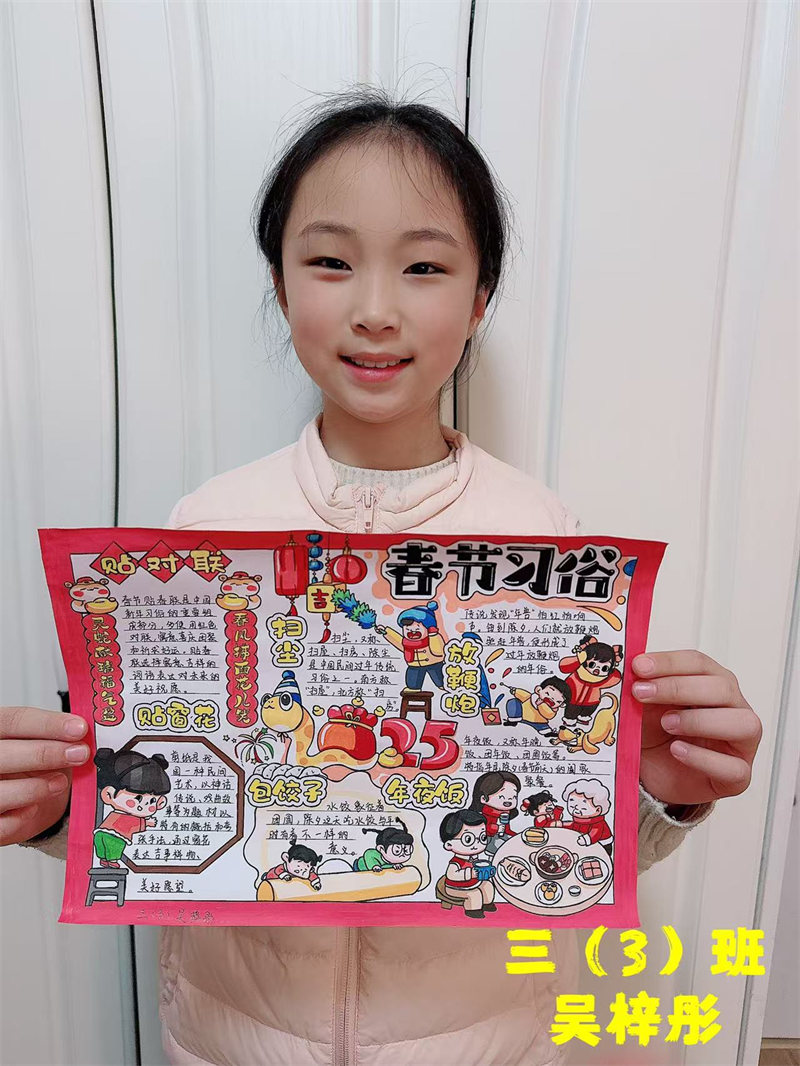 春节习俗
贴对联
春节贴春联是中国
新年习俗的重要组
成部分，多使用红色
对联，寓意喜庆团聚
和祈求好运，贴春
联选择寓意吉祥的
词语表达对未来的
美好祝愿。
春风拂面花儿兒
吉
扫尘
扫尘，又称
扫屋、扫房、陈尘
是中国民间过年传统
习俗之一。南方称
"扫屋"，北方称"扫
房"。
放鞭炮
传说发现"年兽"怕红怕响
声。每到除夕，人们就放鞭炮
驱赶年兽，便形成了
过年放鞭炮
的年俗。
贴窗花
剪纸是我
国一种民间
艺术，以神话
传说、戏曲故
事等为题材以
特有的概括和夸
张手法，通过窗花
表达吉事祥物、
美好愿望。
25
包饺子
水饺象征着
团圆，除夕这天吃水饺与平
时有着不一样的
意义。
年夜饭
年夜饭，又称年晚
饭、团年饭、团圆饭等。
特指年尾除夕(春节前夕)的阖家
聚餐。
三(3)吴梓彤
三（3）班
吴梓彤